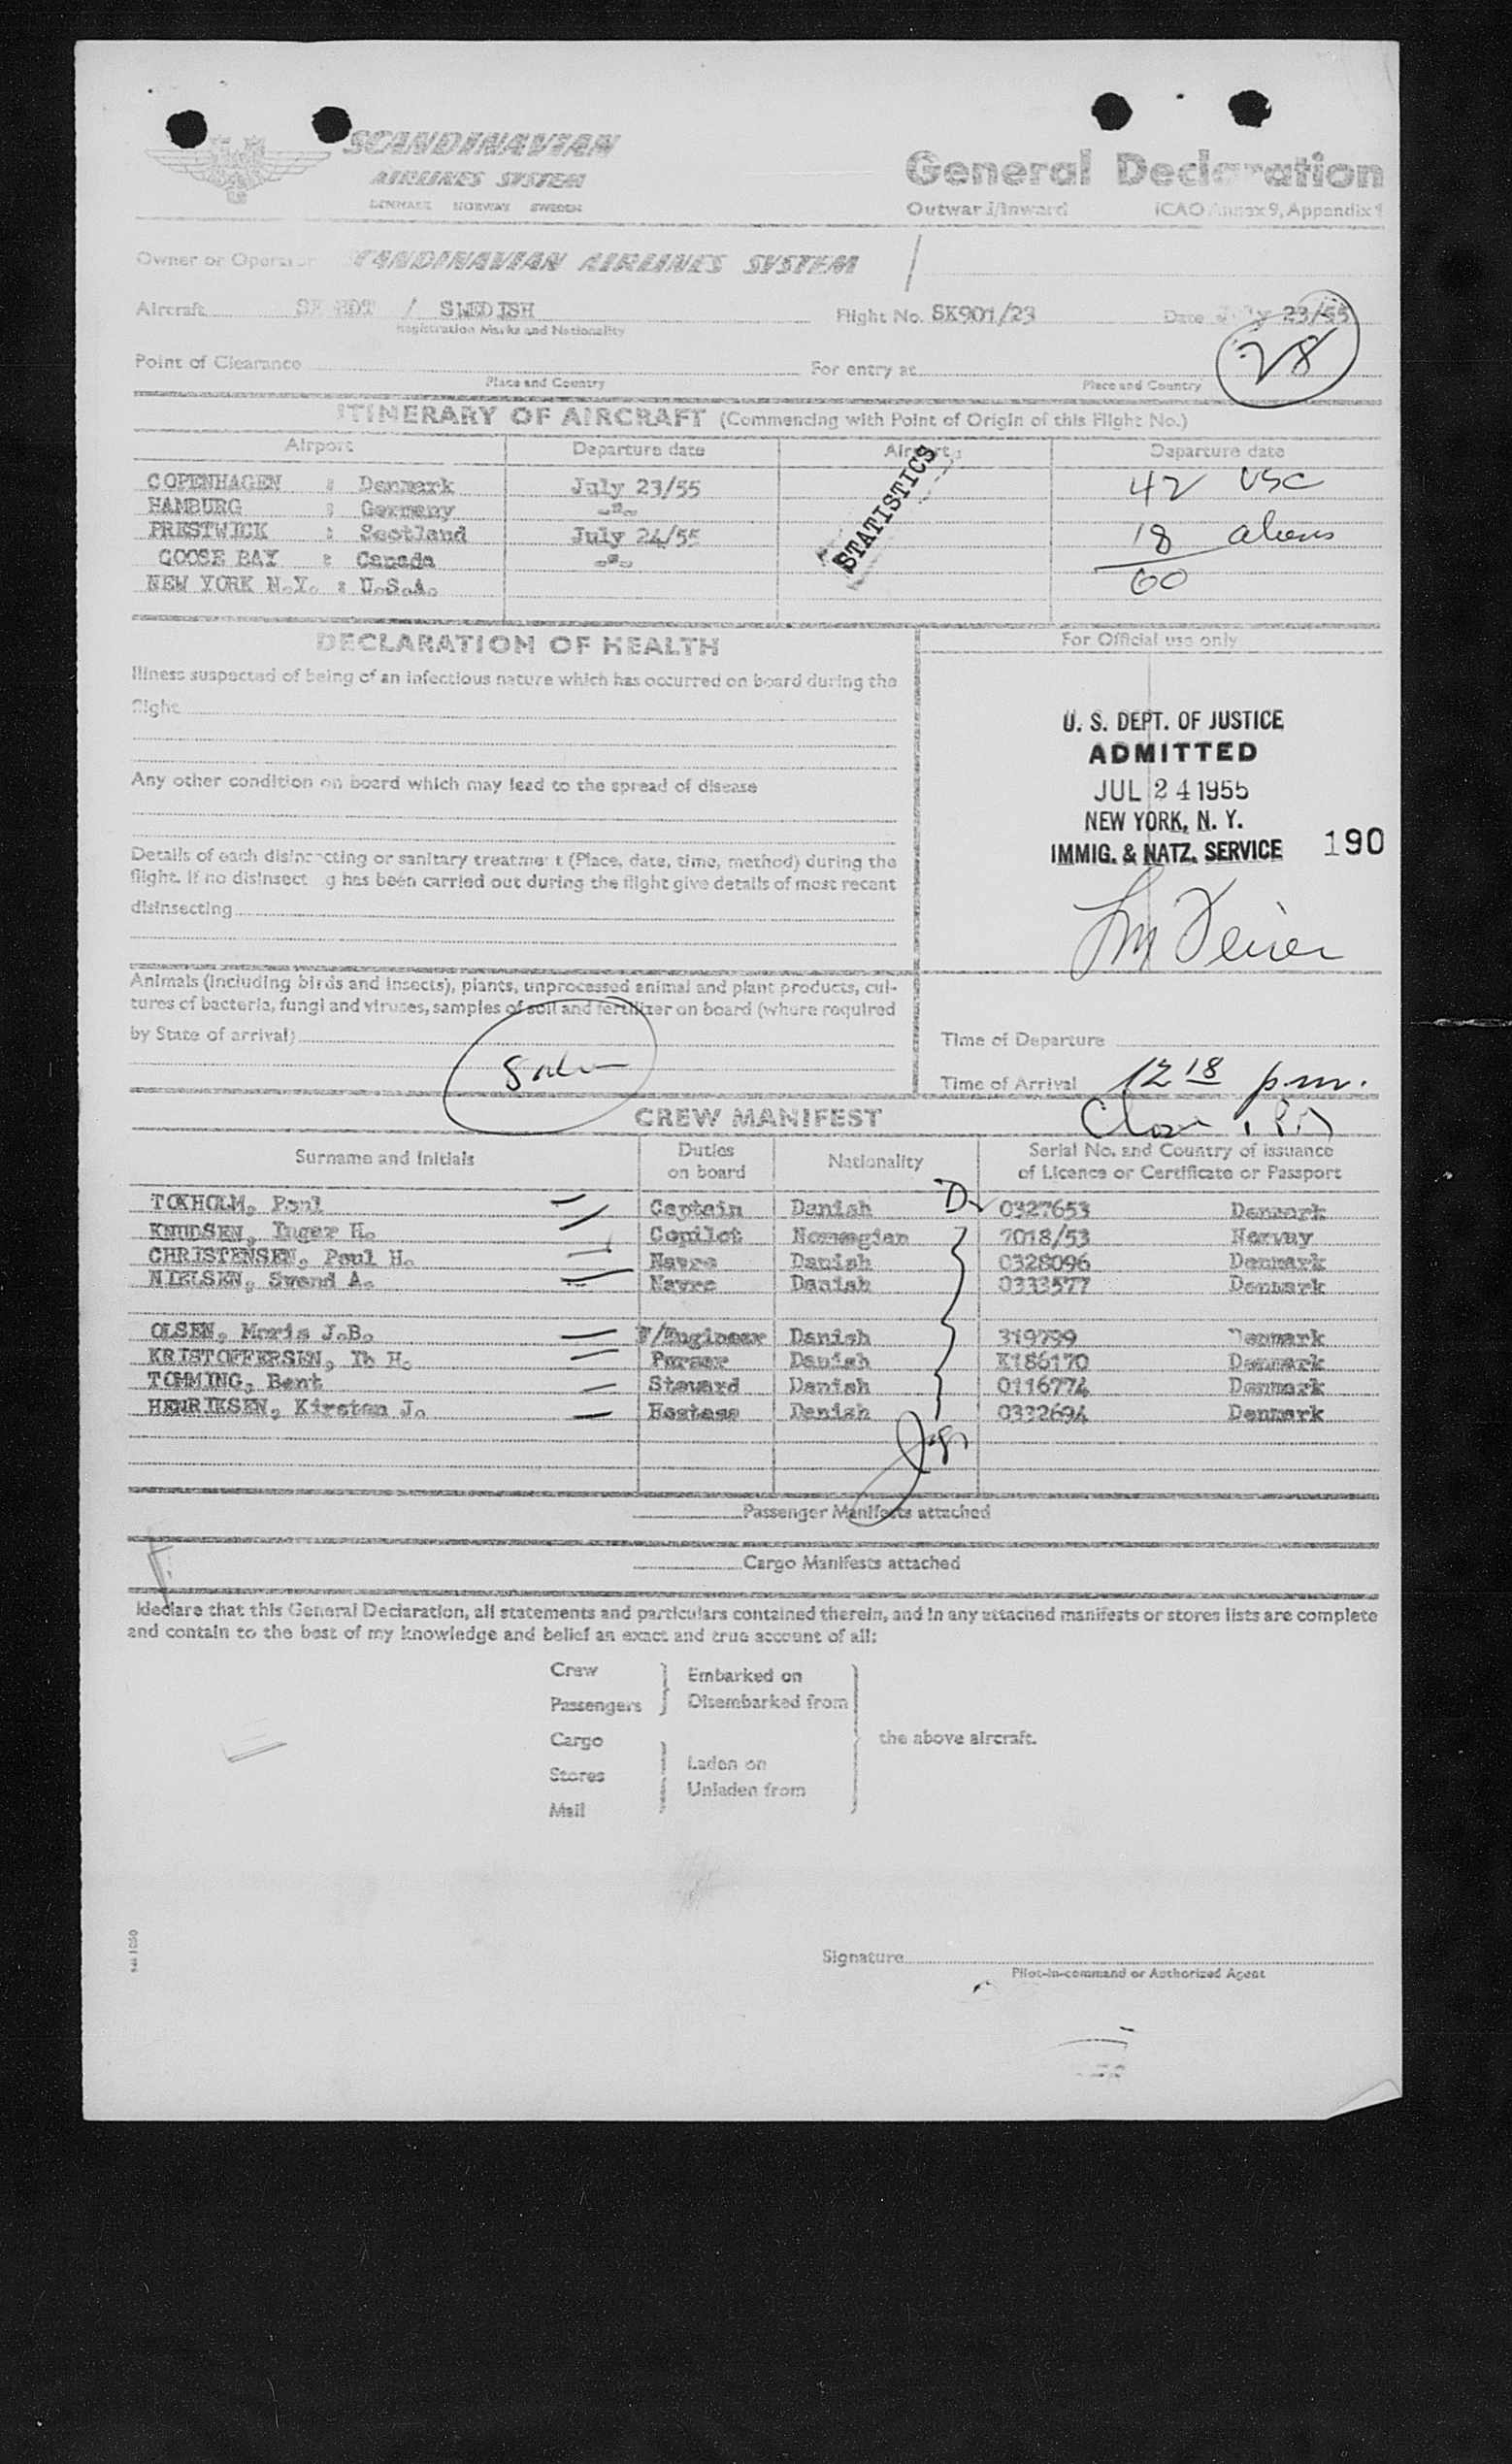 SCANDINAVIAN
AIRLINES SYSTEM
DENMARK NORWAY SWEDEN
General Declaration
Outward/Inward ICAO Annex 9, Appendix 1
Owner or Operator SCANDINAVIAN AIRLINES SYSTEM
Aircraft / SWEDISH Flight No. SK901/23 Date July 23/55
Registration Marks and Nationality
28
Point of Clearance For entry at
Place and Country Place and Country
ITINERARY OF AIRCRAFT (Commencing with Point of Origin of this Flight No.)
Airport Departure date Airport Departure date
COPENHAGEN : Denmark July 23/55 42 USC
HAMBURG : Germany -"-
PRESTWICK : Scotland July 24/55 18 aliens
GOOSE BAY : Canada -"-
NEW YORK N.Y. : U.S.A. 60
STATISTICS
DECLARATION OF HEALTH
For Official use only
Illness suspected of being of an infectious nature which has occurred on board during the
flight
Any other condition on board which may lead to the spread of disease
Details of each disinsecting or sanitary treatment (Place, date, time, method) during the
flight. If no disinsecting has been carried out during the flight give details of most recent
disinsecting
U. S. DEPT. OF JUSTICE
ADMITTED
JUL 24 1955
NEW YORK, N. Y.
IMMIG. & NATZ. SERVICE 190
Animals (including birds and insects), plants, unprocessed animal and plant products, cul-
tures of bacteria, fungi and viruses, samples of soil and fertilizer on board (where required
by State of arrival)
Time of Departure
Time of Arrival 12 18 p.m.
CREW MANIFEST
Surname and Initials Duties on board Nationality Serial No. and Country of issuance
of Licence or Certificate or Passport
TOXHOLM, Poul Captain Danish D 0327653 Denmark
KNUDSEN, Inger H. Copilot Norwegian 7018/53 Norway
CHRISTENSEN, Poul H. Navre Danish 0328096 Denmark
NIELSEN, Svend A. Navre Danish 0333577 Denmark
OLSEN, Moris J.B. F/Engineer Danish 319799 Denmark
KRISTOFFERSEN, Ib H. Purser Danish K186170 Denmark
TOMMING, Bent Steward Danish 0116774 Denmark
HENRIKSEN, Kirsten J. Hostess Danish 0332694 Denmark
Passenger Manifests attached
Cargo Manifests attached
I declare that this General Declaration, all statements and particulars contained therein, and in any attached manifests or stores lists are complete
and contain to the best of my knowledge and belief an exact and true account of all:
Crew
Passengers
Embarked on
Disembarked from
Cargo
Stores
Mail
Laden on
Unladen from
the above aircraft.
Signature
Pilot-in-command or Authorized Agent